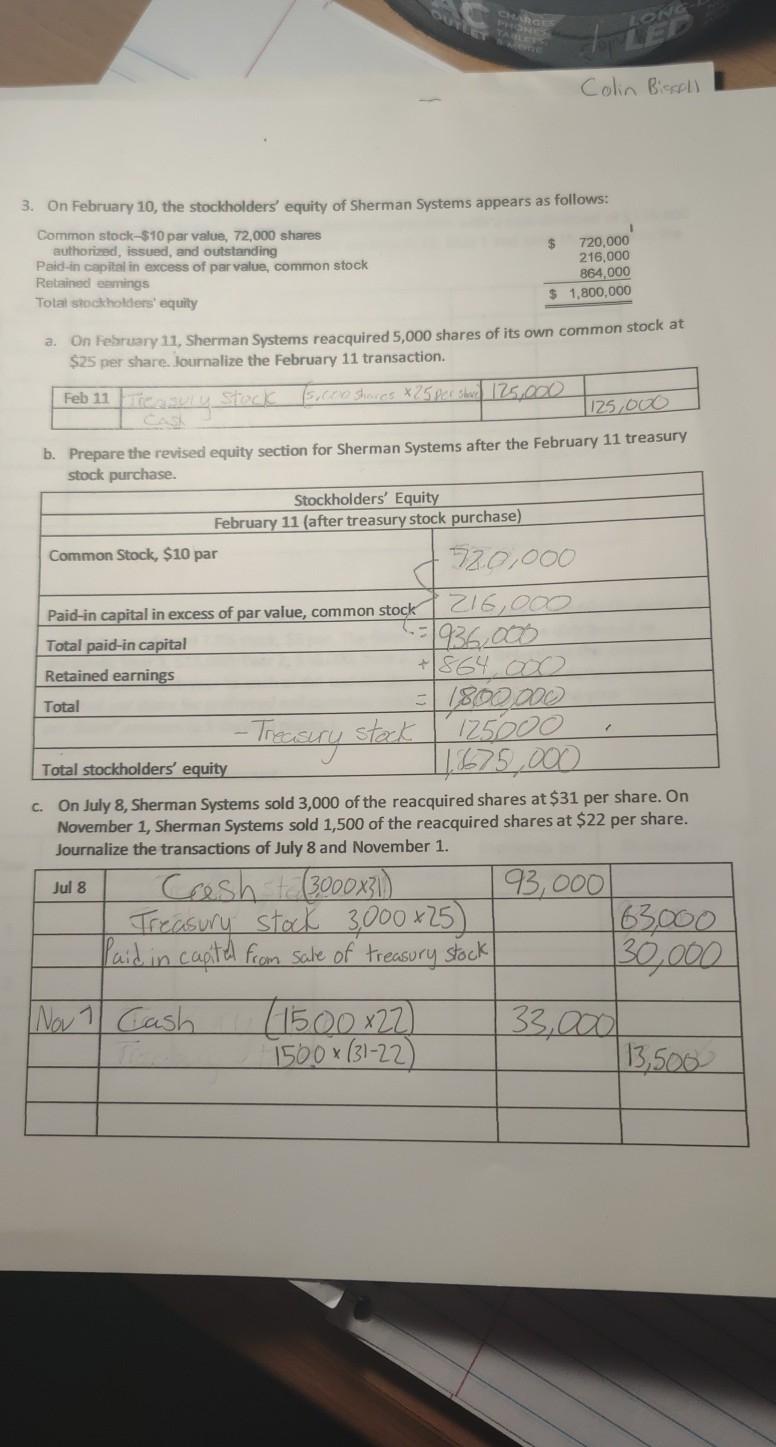 AC
OUTLET
CHARGES
PHONES
TABLETS
& MORE
LONG
LED
Colin
3. On February 10, the stockholders' equity of Sherman Systems appears as follows:
Common stock–$10 par value, 72,000 shares
authorized, issued, and outstanding $ 720,000
Paid-in capital in excess of par value, common stock 216,000
Retained earnings 864,000
Total stockholders' equity $ 1,800,000
a. On February 11, Sherman Systems reacquired 5,000 shares of its own common stock at
$25 per share. Journalize the February 11 transaction.
Feb 11 Treasury Stock (5,000 shares x 25 per share) 125,000
Cash 125,000
b. Prepare the revised equity section for Sherman Systems after the February 11 treasury
stock purchase.
Stockholders' Equity
February 11 (after treasury stock purchase)
Common Stock, $10 par 720,000
Paid-in capital in excess of par value, common stock 216,000
Total paid-in capital = 936,000
Retained earnings + 864,000
Total = 1,800,000
- Treasury stock 125000
Total stockholders' equity 1,675,000
c. On July 8, Sherman Systems sold 3,000 of the reacquired shares at $31 per share. On
November 1, Sherman Systems sold 1,500 of the reacquired shares at $22 per share.
Journalize the transactions of July 8 and November 1.
Jul 8 Cash (3000x31) 93,000
Treasury stock 3,000 x25) 63,000
Paid in capital from sale of treasury stock 30,000
Nov 1 Cash (1500 x22) 33,000
1500 x (31-22) 13,500